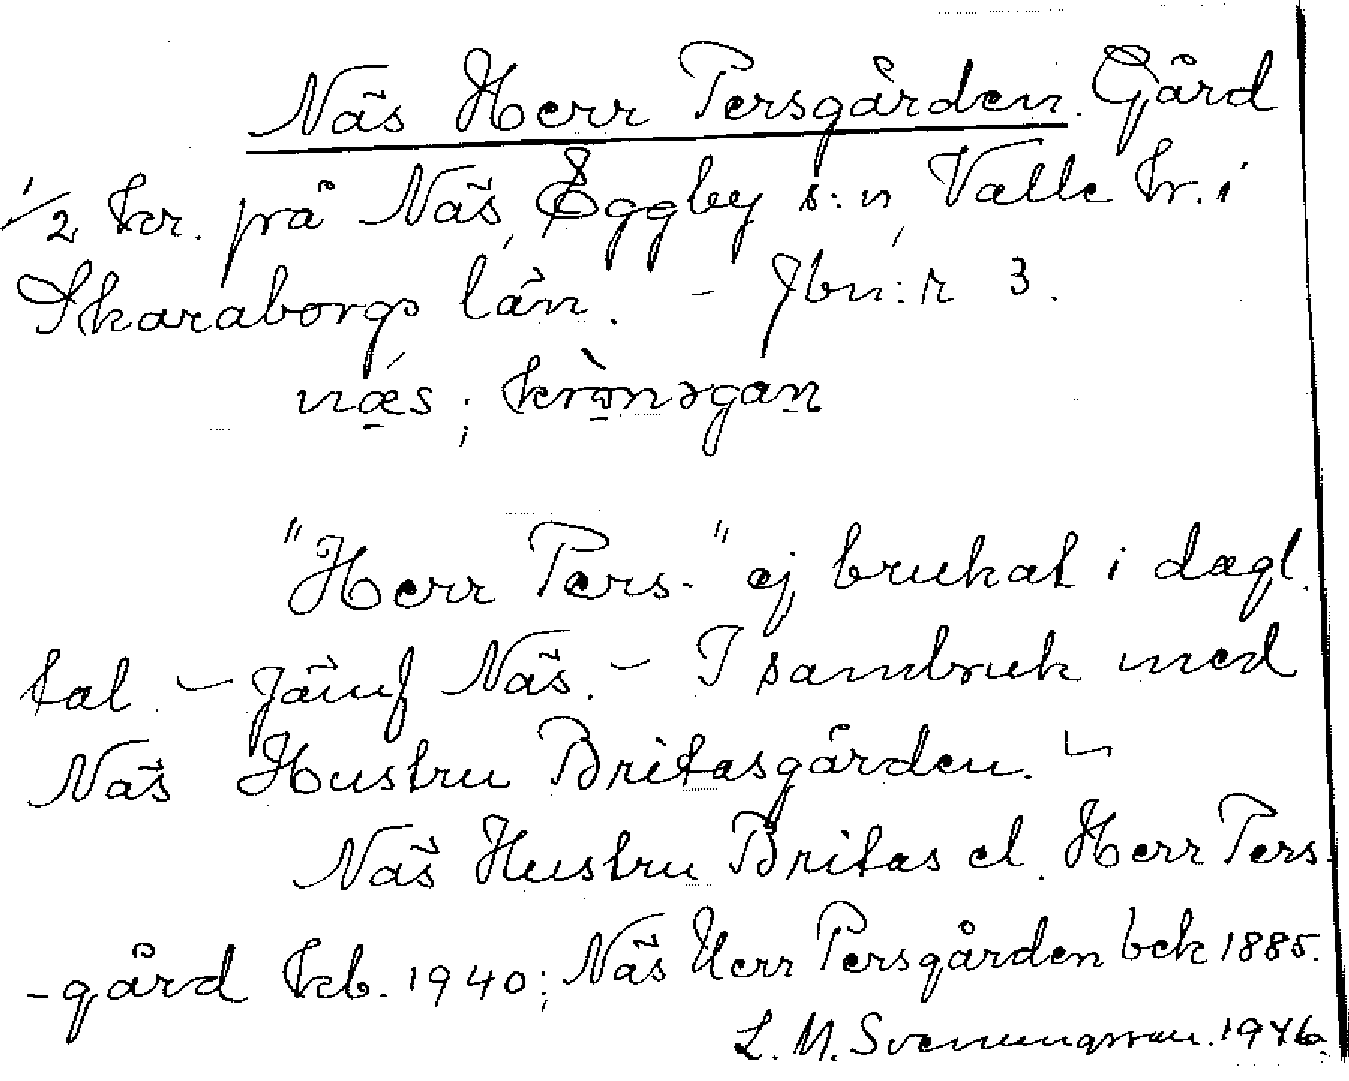 Näs Herr Persgården. Gård
1/2 kr. på Näs, Eggby s:n, Valle hr. i
Skaraborgs län. - Jbn:r 3.
næs; krònəgan
"Herr Pers-" ej brukat i dagl.
tal. - Jämf Näs. - I sambruk med
Näs Hustru Britasgården. -
Näs Hustru Britas el. Herr Pers-
-gård kb. 1940; Näs Herr Persgården bek 1885.
L. M. Svenungsson. 1946.